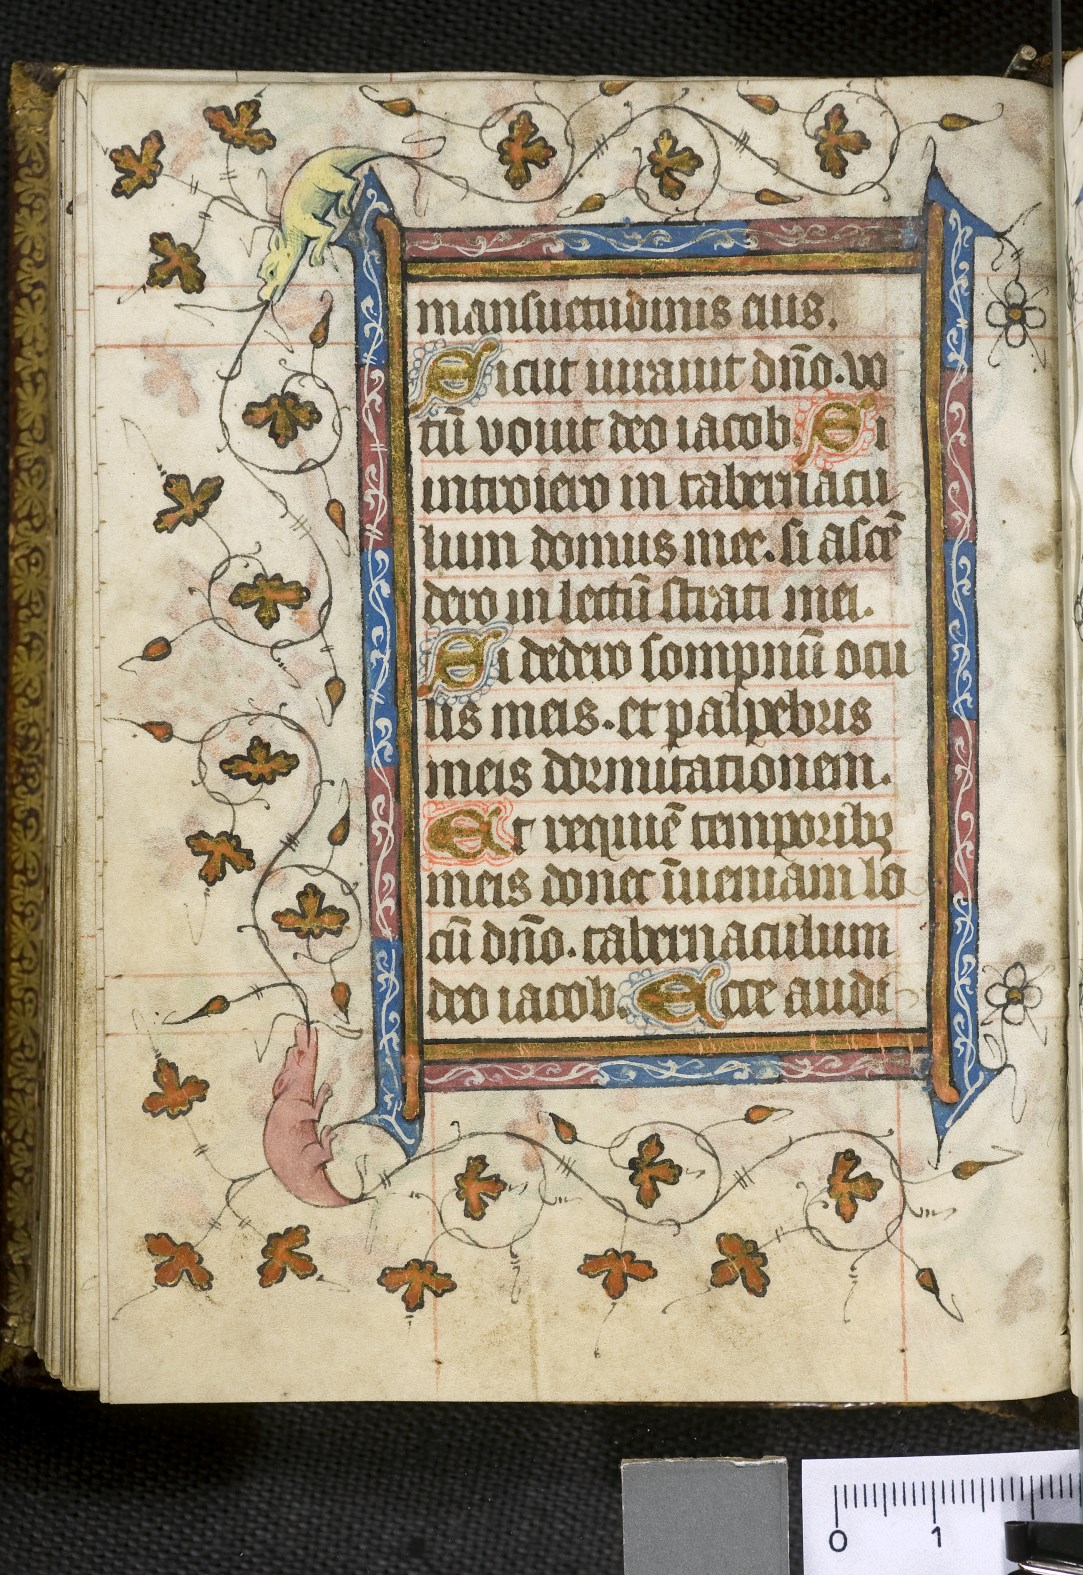 mansuetudinis eius.
Sicut iurauit dn̄o. vo
tū vouit deo iacob. Si
introiero in tabernacu
lum domus mee. si ascē
dero in lectū strati mei.
Si dedero sompnū ocu
lis meis. et palpebris
meis dormitationem.
Et requiē temporibꝫ
meis donec īueniam lo
cū dn̄o. tabernaculum
deo iacob. Ecce audi
0 1